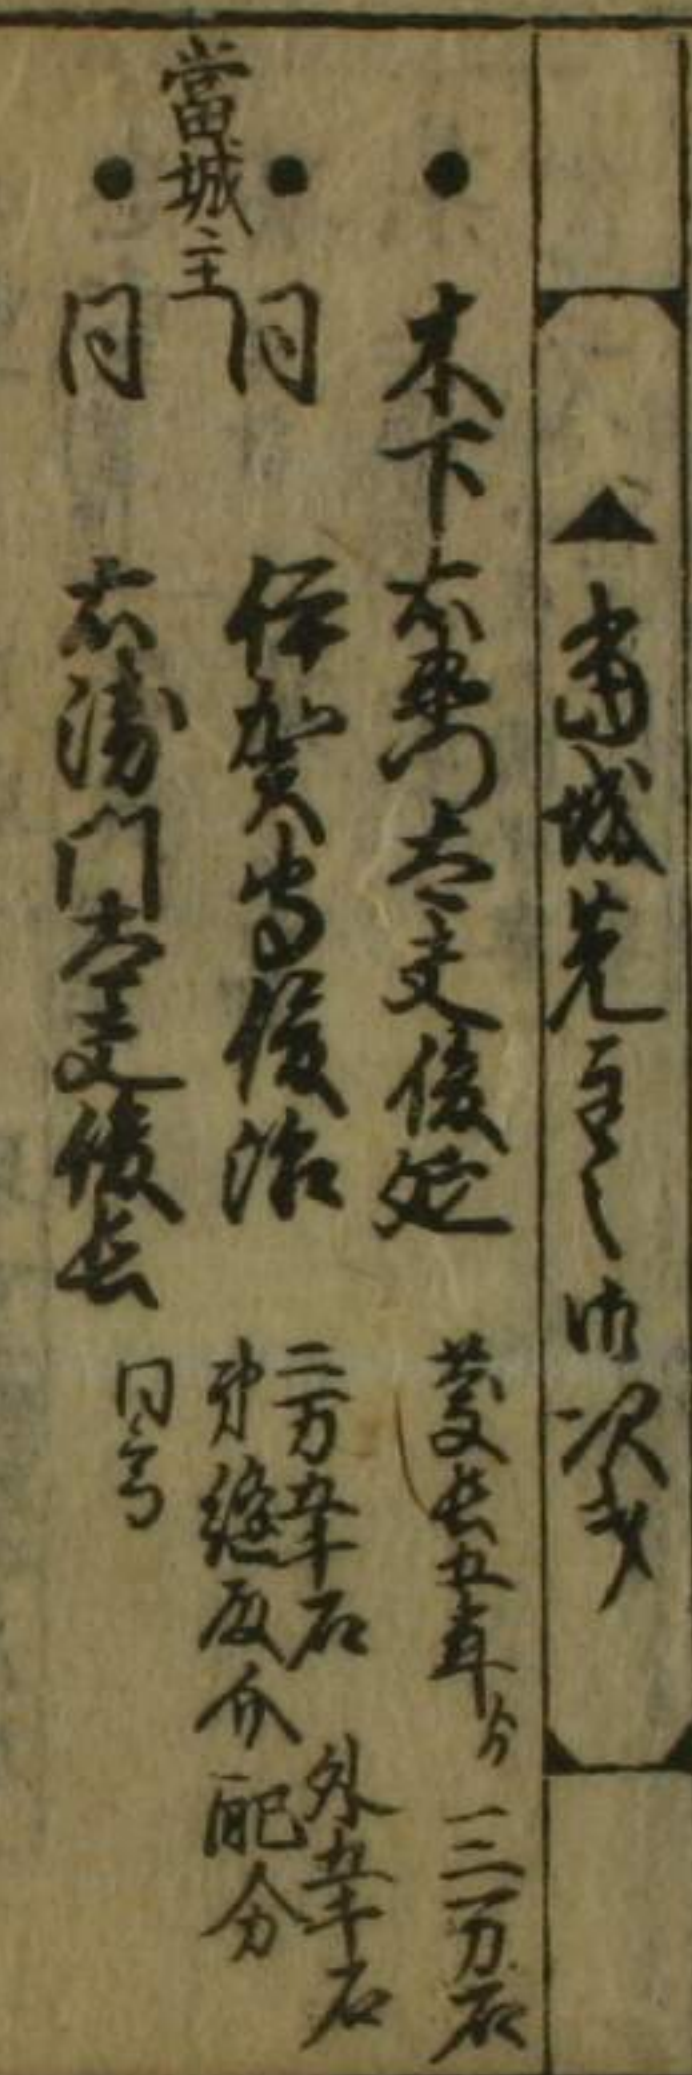 ▲當城先主之御次第
● 木下右衛門太夫俊延 慶長五年ゟ 三万石
● 同 伊賀守俊治 二万五千石 外五千石
弟縫殿介配分
當城主
● 同 右衛門太夫俊長 同高